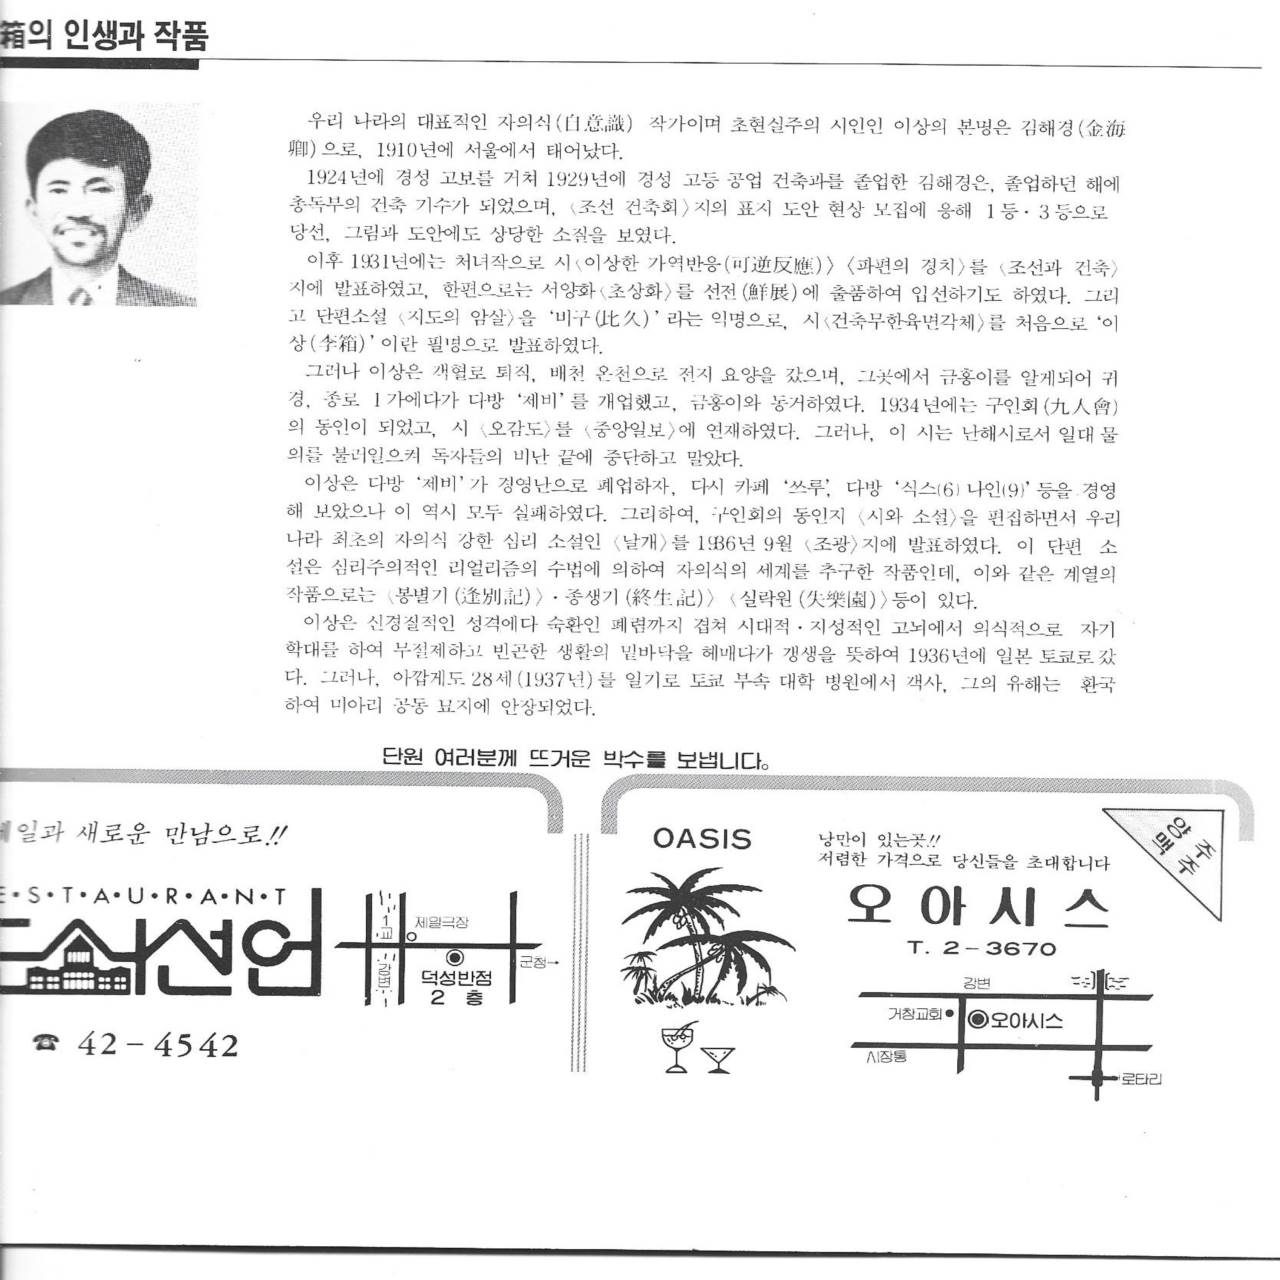 箱의 인생과 작품
우리 나라의 대표적인 자의식(自意識) 작가이며 초현실주의 시인인 이상의 본명은 김해경(金海
卿)으로, 1910년에 서울에서 태어났다.
1924년에 경성 고보를 거쳐 1929년에 경성 고등 공업 건축과를 졸업한 김해경은, 졸업하던 해에
총독부의 건축 기수가 되었으며, 〈조선 건축회〉지의 표지 도안 현상 모집에 응해 1등·3등으로
당선, 그림과 도안에도 상당한 소질을 보였다.
이후 1931년에는 처녀작으로 시〈이상한 가역반응(可逆反應)〉〈파편의 경치〉를 〈조선과 건축〉
지에 발표하였고, 한편으로는 서양화〈초상화〉를 선전(鮮展)에 출품하여 입선하기도 하였다. 그리
고 단편소설 〈지도의 암살〉을 '비구(比久)' 라는 익명으로, 시〈건축무한육면각체〉를 처음으로 '이
상(李箱)'이란 필명으로 발표하였다.
그러나 이상은 객혈로 퇴직, 배천 온천으로 전지 요양을 갔으며, 그곳에서 금홍이를 알게되어 귀
경, 종로 1가에다가 다방 '제비'를 개업했고, 금홍이와 동거하였다. 1934년에는 구인회(九人會)
의 동인이 되었고, 시 〈오감도〉를 〈중앙일보〉에 연재하였다. 그러나, 이 시는 난해시로서 일대 물
의를 불러일으켜 독자들의 비난 끝에 중단하고 말았다.
이상은 다방 '제비'가 경영난으로 폐업하자, 다시 카페 '쓰루', 다방 '식스(6)나인(9)'등을 경영
해 보았으나 이 역시 모두 실패하였다. 그리하여, 구인회의 동인지 〈시와 소설〉을 편집하면서 우리
나라 최초의 자의식 강한 심리 소설인 〈날개〉를 1936년 9월 〈조광〉지에 발표하였다. 이 단편 소
설은 심리주의적인 리얼리즘의 수법에 의하여 자의식의 세계를 추구한 작품인데, 이와 같은 계열의
작품으로는 〈봉별기(逢別記)〉·종생기(終生記)〉〈실락원(失樂園)〉등이 있다.
이상은 신경질적인 성격에다 숙환인 폐렴까지 겹쳐 시대적·지성적인 고뇌에서 의식적으로 자기
학대를 하여 무절제하고 빈곤한 생활의 밑바닥을 헤매다가 갱생을 뜻하여 1936년에 일본 토쿄로갔
다. 그러나, 아깝게도 28세(1937년)를 일기로 토쿄 부속 대학 병원에서 객사, 그의 유해는 환국
하여 미아리 공동 묘지에 안장되었다.
단원 여러분께 뜨거운 박수를 보냅니다.
일과 새로운 만남으로!!
E·S·T·A·U·R·A·N·T
시선언
☎ 42-4542
1교
강변
제일극장
덕성반점
2 층
군청→
OASIS
낭만이 있는곳!!
저렴한 가격으로 당신들을 초대합니다
양주
맥주
오아시스
T. 2-3670
강변
거창교회
오아시스
시장통
로타리